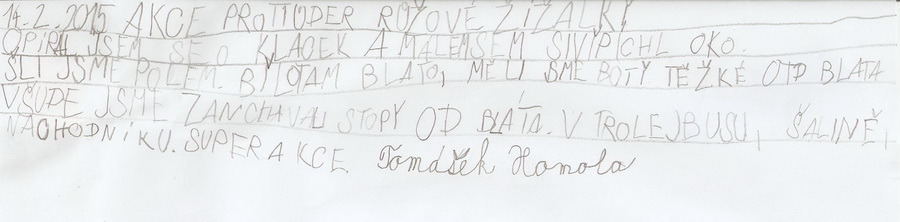 14.2.2015 AKCE PROTIODER RŮŽOVÉ ŽÍŽALKY
OPÍRAL JSEM SE O KLACEK A MÁLEMSEM SIVIPICHL OKO.
ŠLI JSME POLEM. BILOTAM BLÁTO, MĚLI SME BOTY TĚŽKÉ OTD BLATA
VŠUDE JSME ZANCHAVALI STOPY OD BLÁTA. V TROLEJBUSU, ŠALINĚ,
NACHODNÍKU. SUPER AKCE. Tomášek Homola